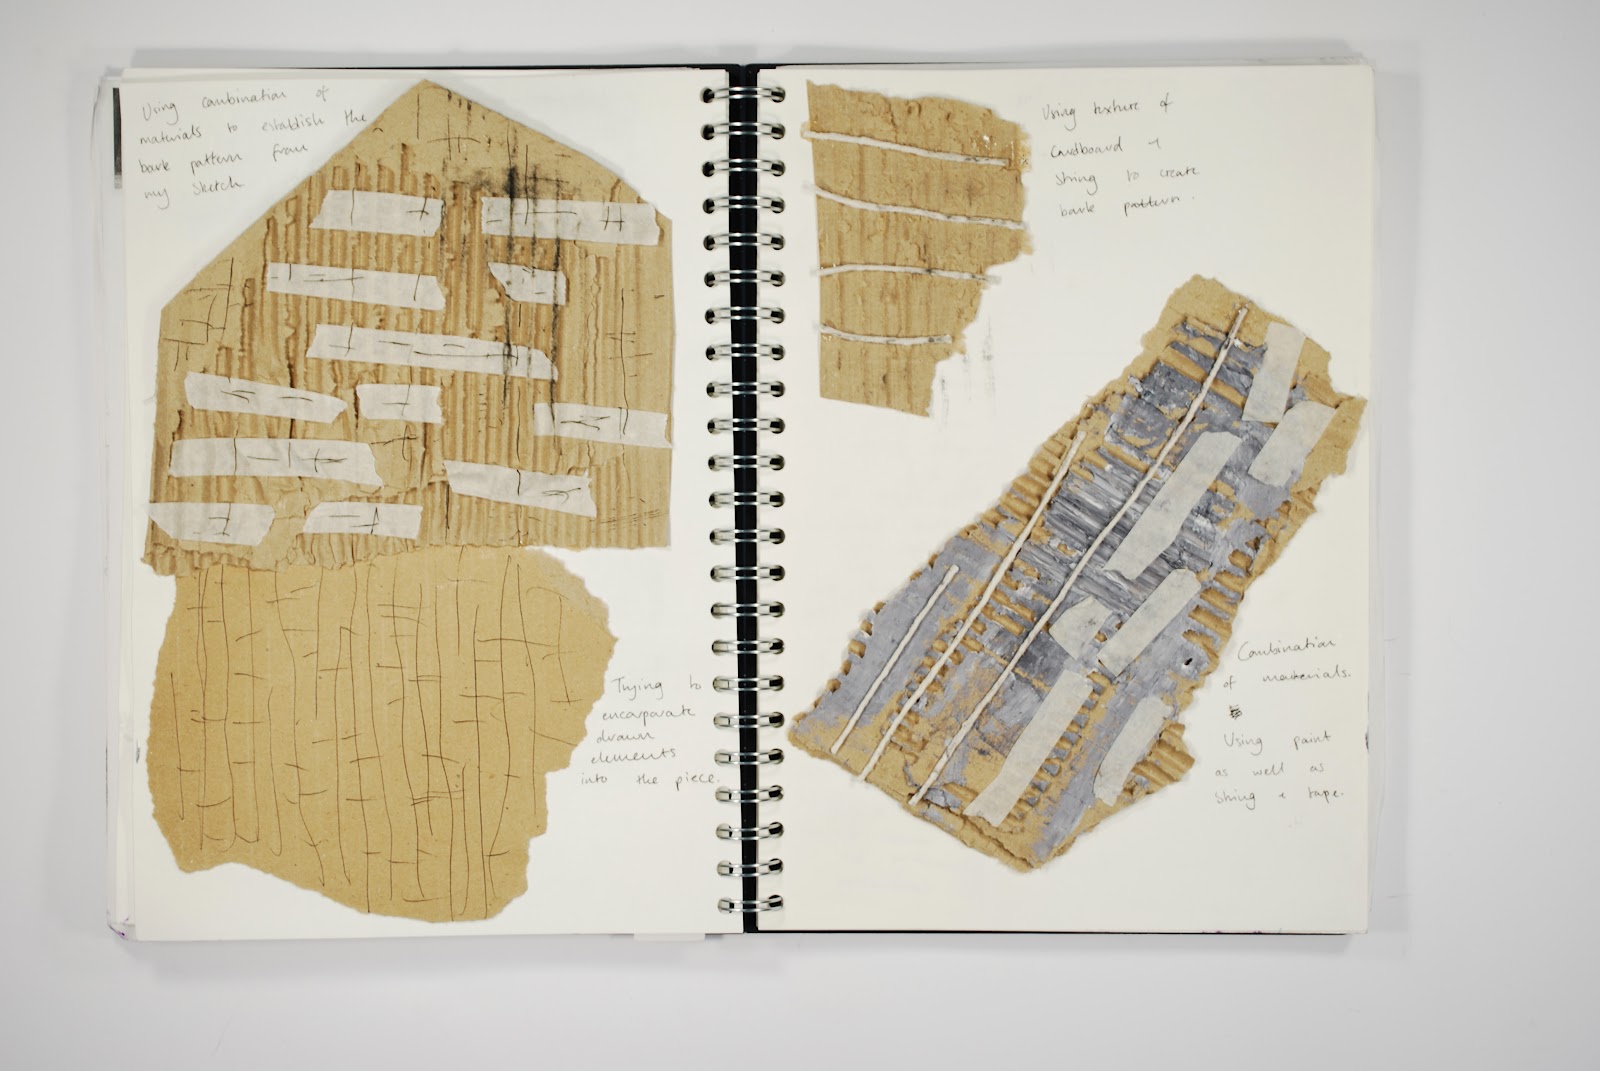 Using combination of
materials to establish the
bark pattern from
my sketch
Trying to
encorporate
drawn
elements
into the piece.
Using texture of
cardboard +
string to create
bark pattern.
Combination
of materials.
Using paint
as well as
string + tape.